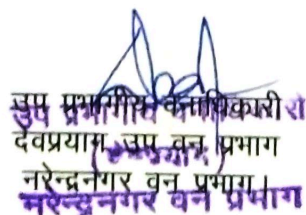 उप प्रभागीय वनाधिकारी
देवप्रयाग उप वन प्रभाग
नरेन्द्रनगर वन प्रभाग।
नरेन्द्रनगर वन प्रभाग